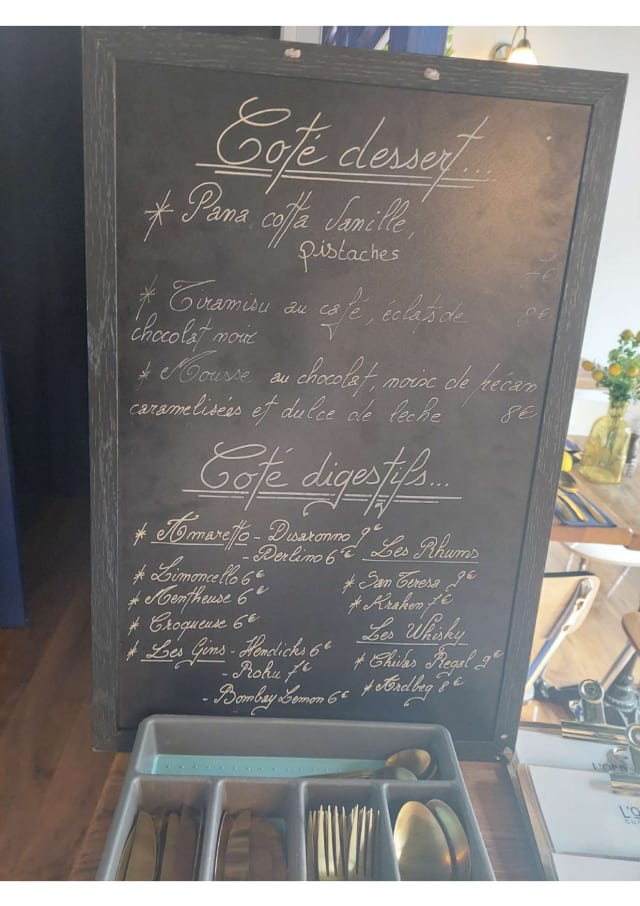 Coté dessert...
* Pana cotta Vanille,
pistaches
* Tiramisu au café, éclats de 8€
chocolat noir
* Mousse au chocolat, noix de pécan
caramelisées et dulce de leche 8€
Coté digestifs...
* Amaretto - Disaronno 9€
- Perlino 6€
* Limoncello 6€
* Mentheuse 6€
* Croqueuse 6€
* Les Gins - Hendicks 6€
- Roku 7€
- Bombay Lemon 6€
Les Rhums
* San Teresa 9€
* Kraken 7€
Les Whisky
* Chivas Regal 9€
* Ardbeg 8€